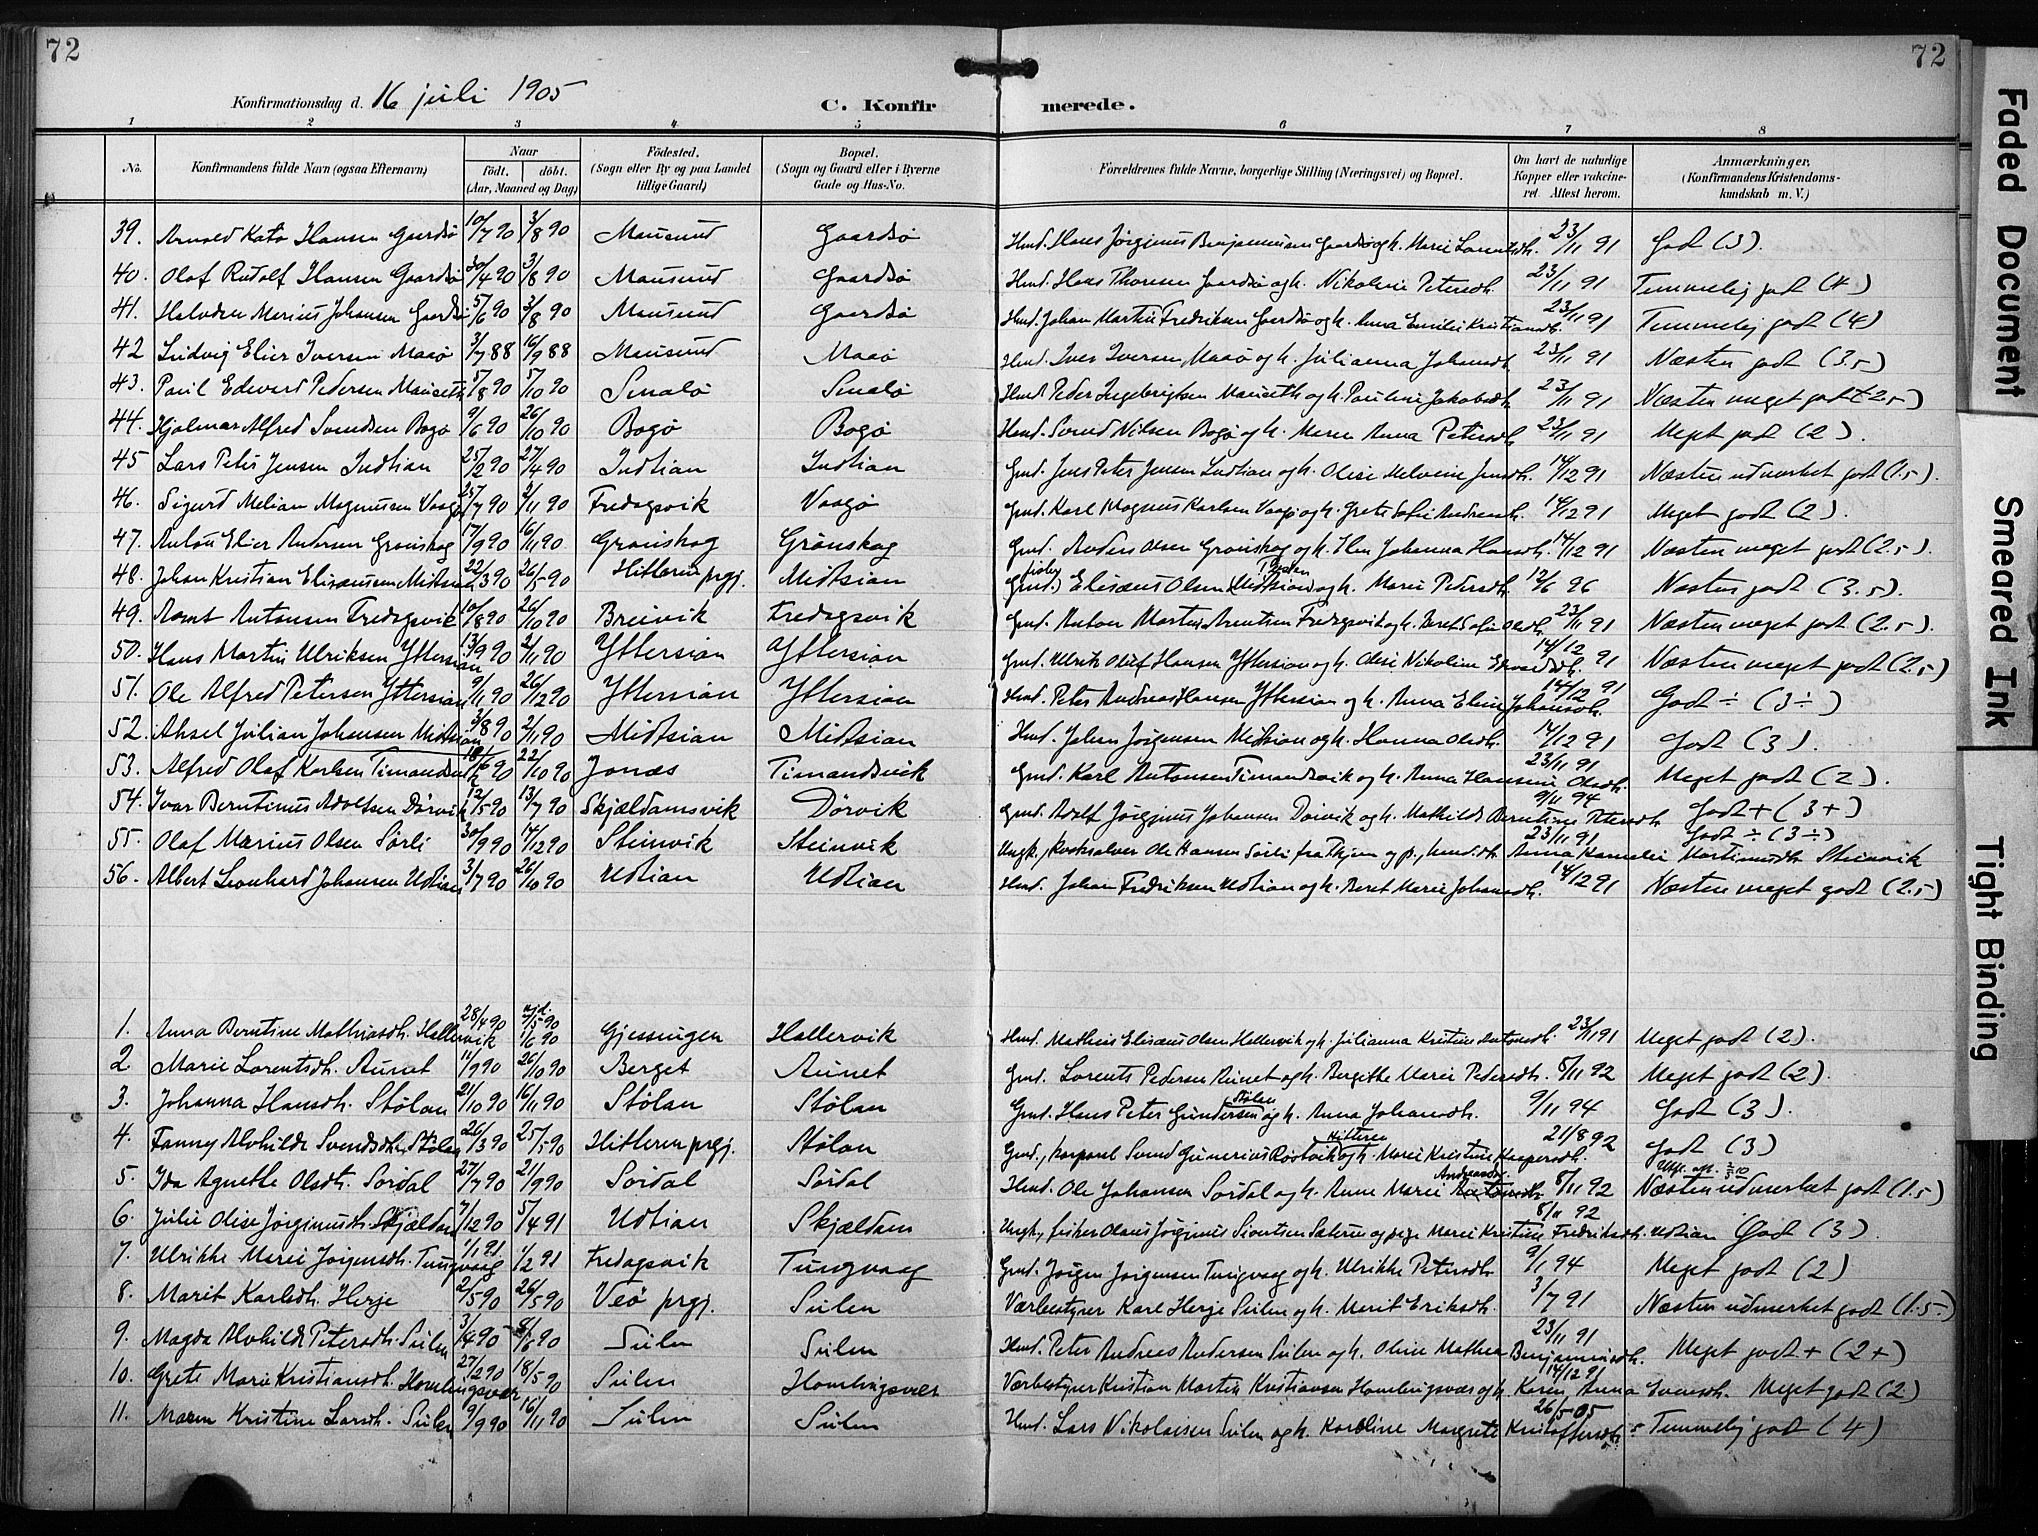 72
72
Konfirmationsdag d. 16 juli 1905
C. Konfirmerede.
1 2 3 4 5 6 7 8
No. Konfirmandens fulde Navn (ogsaa Efternavn) Naar født. døbt. (Aar, Maaned og Dag) Fødested. (Sogn eller By og paa Landet tillige Gaard) Bopæl. (Sogn og Gaard eller i Byerne Gade og Hus-No. Forældrenes fulde Navne, borgerlige Stilling (Næringsvei) og Bopæl. Om havt de naturlige Kopper eller vakcineret. Attest herom. Anmærkninger. (Konfirmandens Kristendomskundskab m. V.)
39. Arnold Kato Hansen Gaardsø 10/7 90 3/8 90 Mausund Gaardsø Hmd. Hans Jørginus Benjaminsen Gaardsø og h. Marie Lorentsdh. 23/11 91 Godt (3).
40. Olaf Rudolf Hansen Gaardsø 30/4 90 3/8 90 Mausund Gaardsø Hmd. Hans Thoresen Gaardsø og h. Nikoline Petersdh. 23/11 91 Temmelig godt (4)
41. Halvdan Marius Johansen Gaardsø 5/6 90 3/8 90 Mausund Gaardsø Hmd. Johan Martin Fredriksen Gaardsø og h. Anna Emilie Kristiansdh. 23/11 91 Temmelig godt (4)
42 Ludvig Elier Iversen Maaø 3/7 88 16/9 88 Mausund Maaø Hmd. Iver Iversen Maaø og h. Julianna Johansdh. 23/11 91 Næsten godt (3.5)
43. Paul Edevard Pedersen 5/8 90 5/10 90 Smalø Smalø Hmd. Peder Ingebrigtsen og h. Pauline Jakobsdh. 23/11 91 Næsten meget godt (2.5)
44. Hjalmar Alfred Svendsen Bogø 9/6 90 26/10 90 Bogø Bogø Hmd. Svend Nilsen Bogø og h. Maren Anna Petersdh. 23/11 91 Meget godt (2).
45 Lars Peter Jensen Indtian 25/2 90 27/4 90 Indtian Indtian Gmd. Jens Peter Jensen Indtian og h. Olise Jensdh. 14/12 91 Næsten udmerket godt (1.5).
46. Sigurd Melian Magnussen Vaagø 25/7 90 2/11 90 Fredagsvik Vaagø Gmd. Karl Magnus Karlsen Vaagø og h. Grete Sofie Andreasdh. 14/12 91 Meget godt (2).
47. Anton Elier Andersen Grønskag 17/9 90 16/11 90 Grønskag Grønskag Gmd. Anders Olsen Grønskag og h. Elen Johanna Hansdh. 14/12 91 Næsten meget godt (2.5).
48. Johan Kristian Elisæussen Midtsian 22/3 90 26/5 90 Hitteren prgj. Midtsian Gmd. fisker Elisæus Olsen Midtsian og h. Marie Pedersdh. 12/6 96 Næsten godt (3.5).
49. Arnt Antonsen Fredagsvik 10/8 90 26/10 90 Breivik Fredagsvik Gmd. Anton Martin Arentsen Fredagsvik og h. Beret Sofie Olsdh. 23/11 91 Næsten meget godt (2.5).
50. Hans Martin Ulriksen Yttersian 13/9 90 2/11 90 Yttersian Yttersian Gmd. Ulrik Oluf Hansen Yttersian og h. Olise Nikoline Edvardsdh. 14/12 91 Næsten meget godt (2.5)
51. Ole Alfred Petersen Yttersian 9/11 90 26/12 90 Yttersian Yttersian Hmd. Peter Andreas Hansen Yttersian og h. Anna Elise Johansdh. 14/12 91 Godt ÷ (3÷)
52. Aksel Julian Johansen Midtsian 3/8 90 2/11 90 Midtsian Midtsian Hmd. Johan Jørgensen Midtsian og h. Hanna Olsdh. 14/12 91 Godt (3).
53. Alfred Olaf Karlsen Timandsvik 18/6 90 22/10 90 Jonæs Timandsvik Gmd. Karl Antonsen Timandsvik og h. Anna Hansine Olsdh. 23/11 91 Meget godt (2).
54. Ivar Berntinus Adolfsen Dørvik 12/5 90 13/7 90 Skjældamsvik Dørvik Gmd. Adolf Jørginus Johansen Dørvik og h. Mathilde Berntine Petersdh. 9/11 94 Godt + (3+)
55. Olaf Marius Olsen Sørli 30/9 90 14/12 90 Steinvik Steinvik Ungk., Ole Hansen Sørli fra Thjem og p., hmd.dt. Anna Kornelie Martinusdh. Steinvik 23/11 91 Godt ÷ (3÷)
56. Albert Leonhard Johansen Udtian 3/7 90 26/10 90 Udtian Udtian Hmd. Johan Fredriksen Udtian og h. Beret Marie Johansdh. 14/12 91 Næsten meget godt (2.5)
1. Anna Berntine Mathiasdh. Hallervik 28/4 90 hjd. 5/5 90 1/6 90 Gjessingen Hallervik Hmd. Mathias Elisæus Olsen Hallervik og h. Julianna Kristine Antonsdh. 23/11 91 Meget godt (2).
2 Marie Lorentsdh. Aunet 11/9 90 26/10 90 Berget Aunet Gmd. Lorents Pedersen Aunet og h. Bergitte Marie Pedersdh. 8/11 92 Meget godt (2).
3. Johanna Hansdh. Stølan 21/10 90 16/11 90 Stølan Stølan Gmd. Hans Peter Gundersen Stølan og h. Anna Johansdh. 9/11 94 Godt (3).
4. Fanny Alvhilde Svendsdh. Stølan 26/3 90 25/5 90 Hitteren prgj. Stølan Gmd., korporal Svend Gunerius Røstvik Hitteren og h. Marie Kristine Kaspersdh. 21/8 92 Godt (3)
5. Ida Agnette Olsdt. Sørdal 27/7 90 21/9 90 Sørdal Sørdal Hmd. Ole Johansen Sørdal og h. Anne Marie Andreasdh. 8/11 92 Næsten udmerket godt (1.5)
6. Julie Olise Jørginusdh. Skjældam 7/12 90 5/4 91 Udtian Skjældam Ungk., fisker Olaus Jørginus Sivertsen Sæteren og pige Marie Kristine Fredriksdh. Udtian 8/11 92 Godt (3).
7. Ulrikke Marie Jørgensdh. Tungvaag 1/1 91 1/2 91 Fredagsvik Tungvaag Gmd. Jørgen Jørgensen Tungvaag og h. Ulrikke Petersdh. 9/1 94 Meget godt (2)
8. Marit Karlsdh. Herje 2/5 90 26/5 90 Veø prgj. Sulen Værbestyrer Karl Herje Sulen og h. Marit Eriksdh. 3/7 91 Næsten udmerket godt (1.5.)
9. Magda Alvhilde Petersdh. Sulen 3/4 90 8/6 90 Sulen Sulen Hmd. Peter Andreas Andersen Sulen og h. Oline Mathea Benjaminsdh. 23/11 91 Meget godt + (2+)
10. Grete Marie Kristiansdh. Homlingsvær 27/2 90 18/5 90 Sulen Homlingsvær Værbestyrer Kristian Martin Kristiansen Homlingsvær og h. Karen Anna Evensdh. 14/12 91 Meget godt (2)
11. Maren Kristine Larsdh. Sulen 9/9 90 16/11 90 Sulen Sulen Hmd. Lars Nikolaisen Sulen og h. Karoline Margrete Kristoffersdh. 26/5 05 Temmelig godt (4)
Faded Document
Smeared Ink
Tight Binding